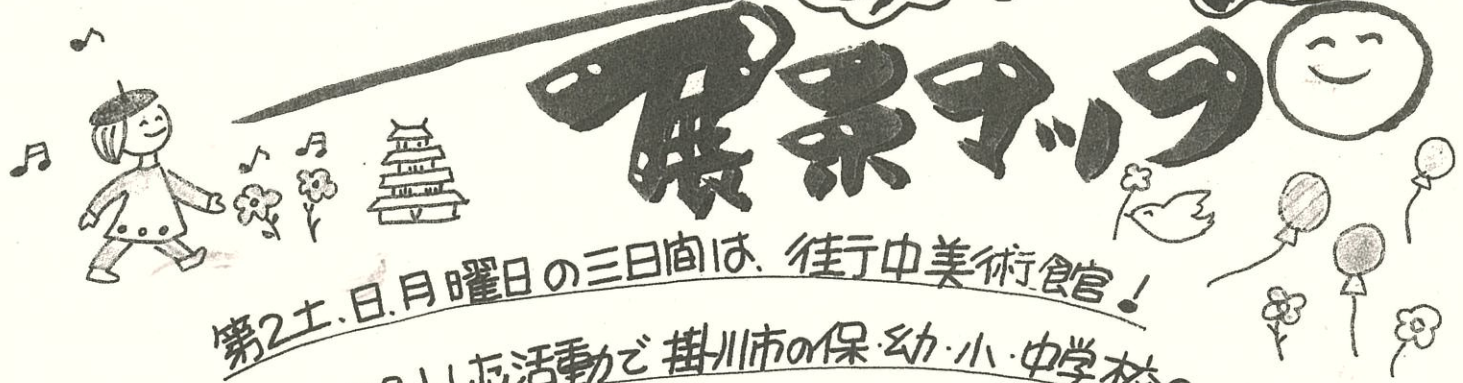 展示マップ
第2土.日.月曜日の三日間は、街中美術館!
した活動で掛川市の保・幼・小・中学校の